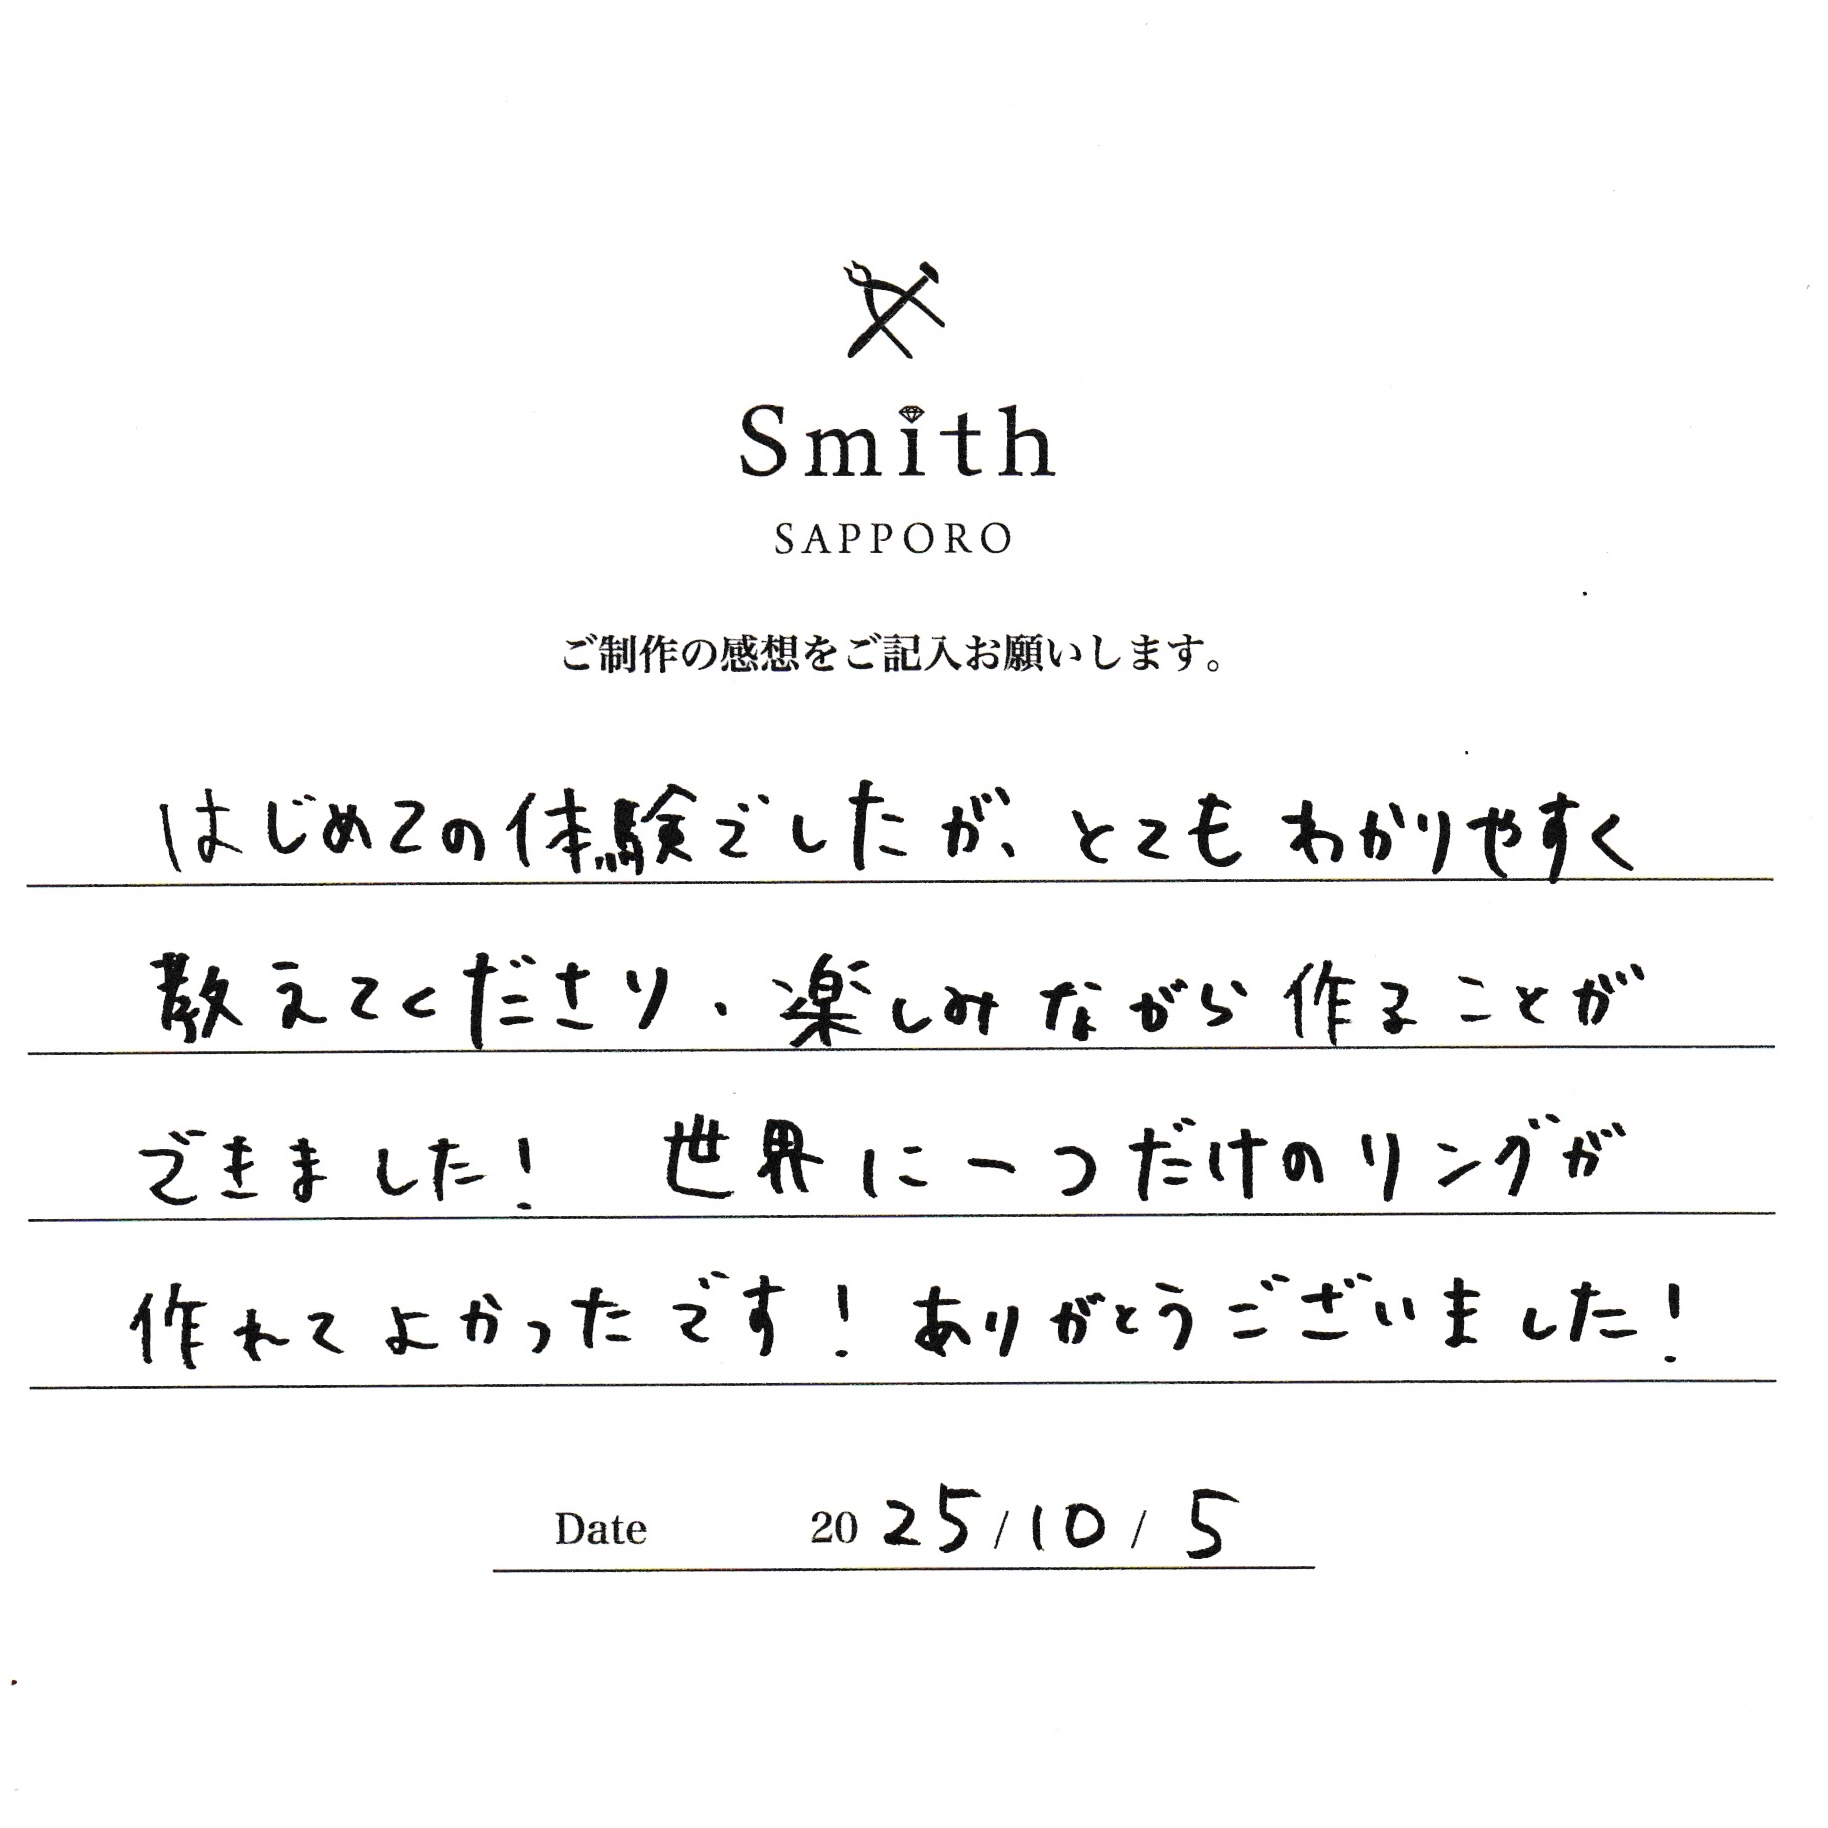 Smith
SAPPORO
ご制作の感想をご記入お願いします。
はじめての体験でしたが、とてもわかりやすく
教えてくださり、楽しみながら作ることが
できました！ 世界に一つだけのリングが
作れてよかったです！ありがとうございました！
Date 2025/10/5